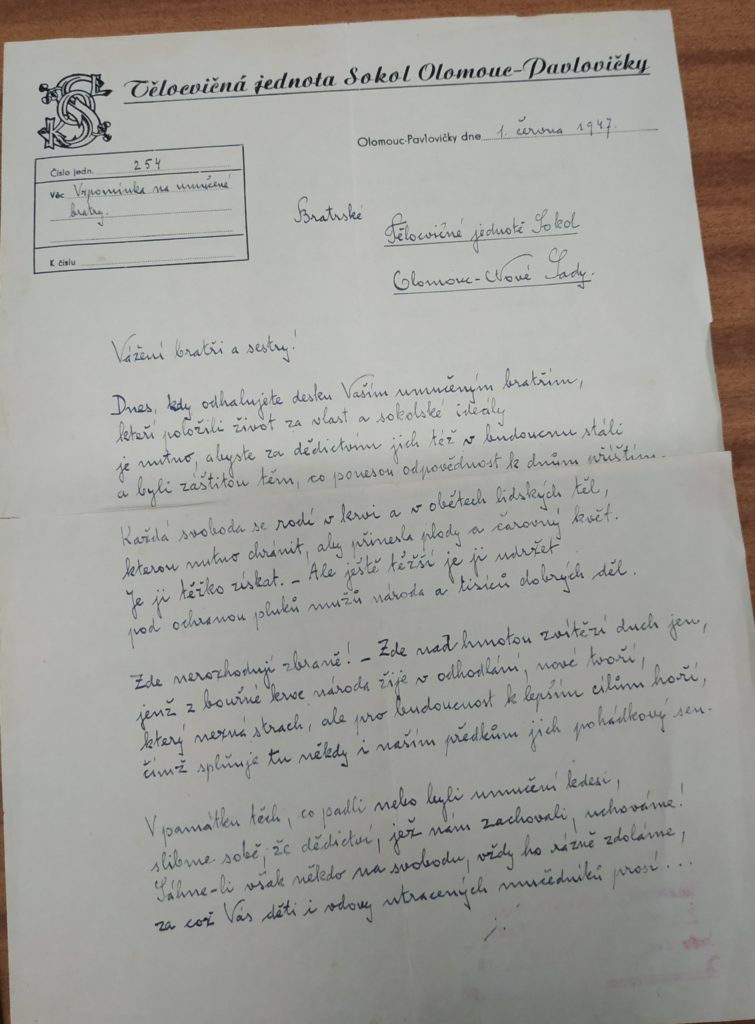 Tělocvičná jednota Sokol Olomouc-Pavlovičky
Olomouc-Pavlovičky dne 1. června 1947.
Číslo jedn. 254
Věc Vzpomínka na umučené
bratry.
K číslu
Bratrské
Tělocvičné jednotě Sokol
Olomouc-Nové Sady.
Vážení bratři a sestry!
Dnes, kdy odhalujete desku Vašim umučeným bratřím,
kteří položili život za vlast a sokolské ideály
je nutno, abyste za dědictvím jich též v budoucnu stáli
a byli záštitou těm, co ponesou odpovědnost k dnům příštím.
Každá svoboda se rodí v krvi a v obětech lidských těl,
kterou nutno chránit, aby přinesla plody a čarovný květ.
Je ji těžko získat. – Ale ještě těžší je ji udržet
pod ochranou pluků mužů národa a tisíců dobrých děl.
Zde nerozhodují zbraně! – Zde nad hmotou zvítězí duch jen,
jenž z bouřné krve národa žije v odhodlání, nové tvoří,
který nezná strach, ale pro budoucnost k lepším cílům hoří,
čímž splňuje tu někdy i našim předkům jich pohádkový sen.
V památku těch, co padli nebo byli umučeni kdesi,
slibme sobě, že dědictví, jež nám zachovali, uchováme!
Sáhne-li však někdo na svobodu, vždy ho rázně zdoláme,
za což Vás děti i vdovy utracených mučedníků prosí...